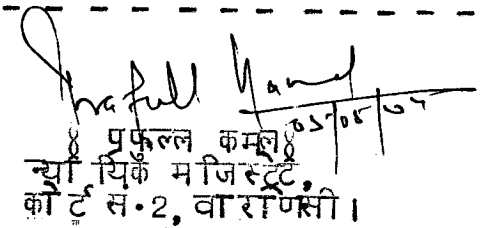 Prafull Kamal
03/05/04
॰ प्रफुल्ल कमल ॰
न्यायिक मजिस्ट्रेट,
कोर्ट स॰2, वाराणसी।